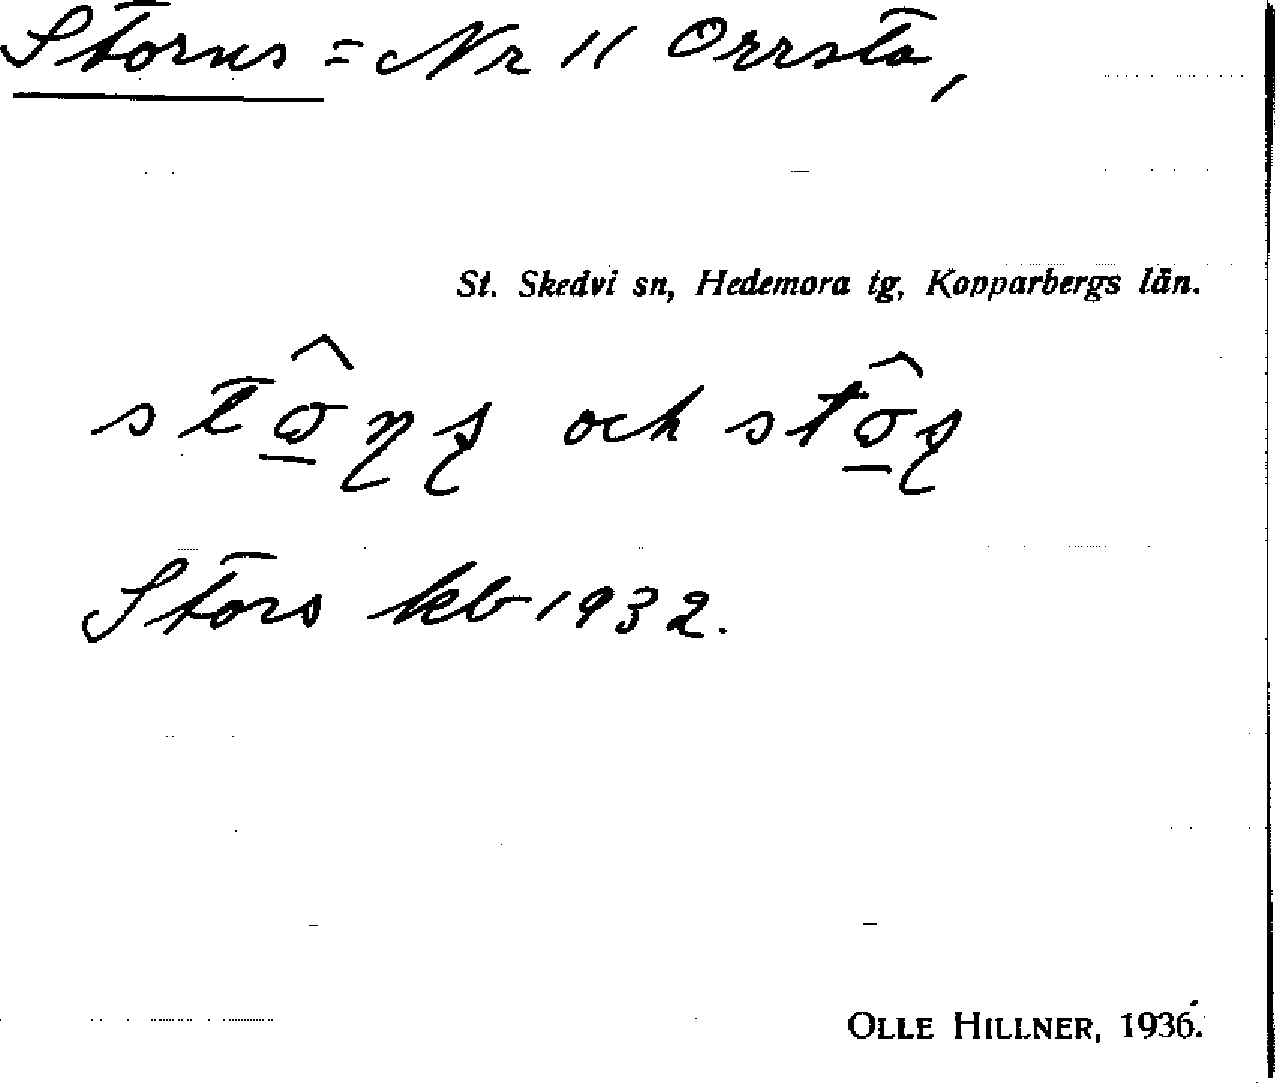 Storns = Nr 11 Orrsta,
St. Skedvi sn, Hedemora tg, Kopparbergs län.
och
Stors kb 1932.
OLLE HILLNER, 1936.